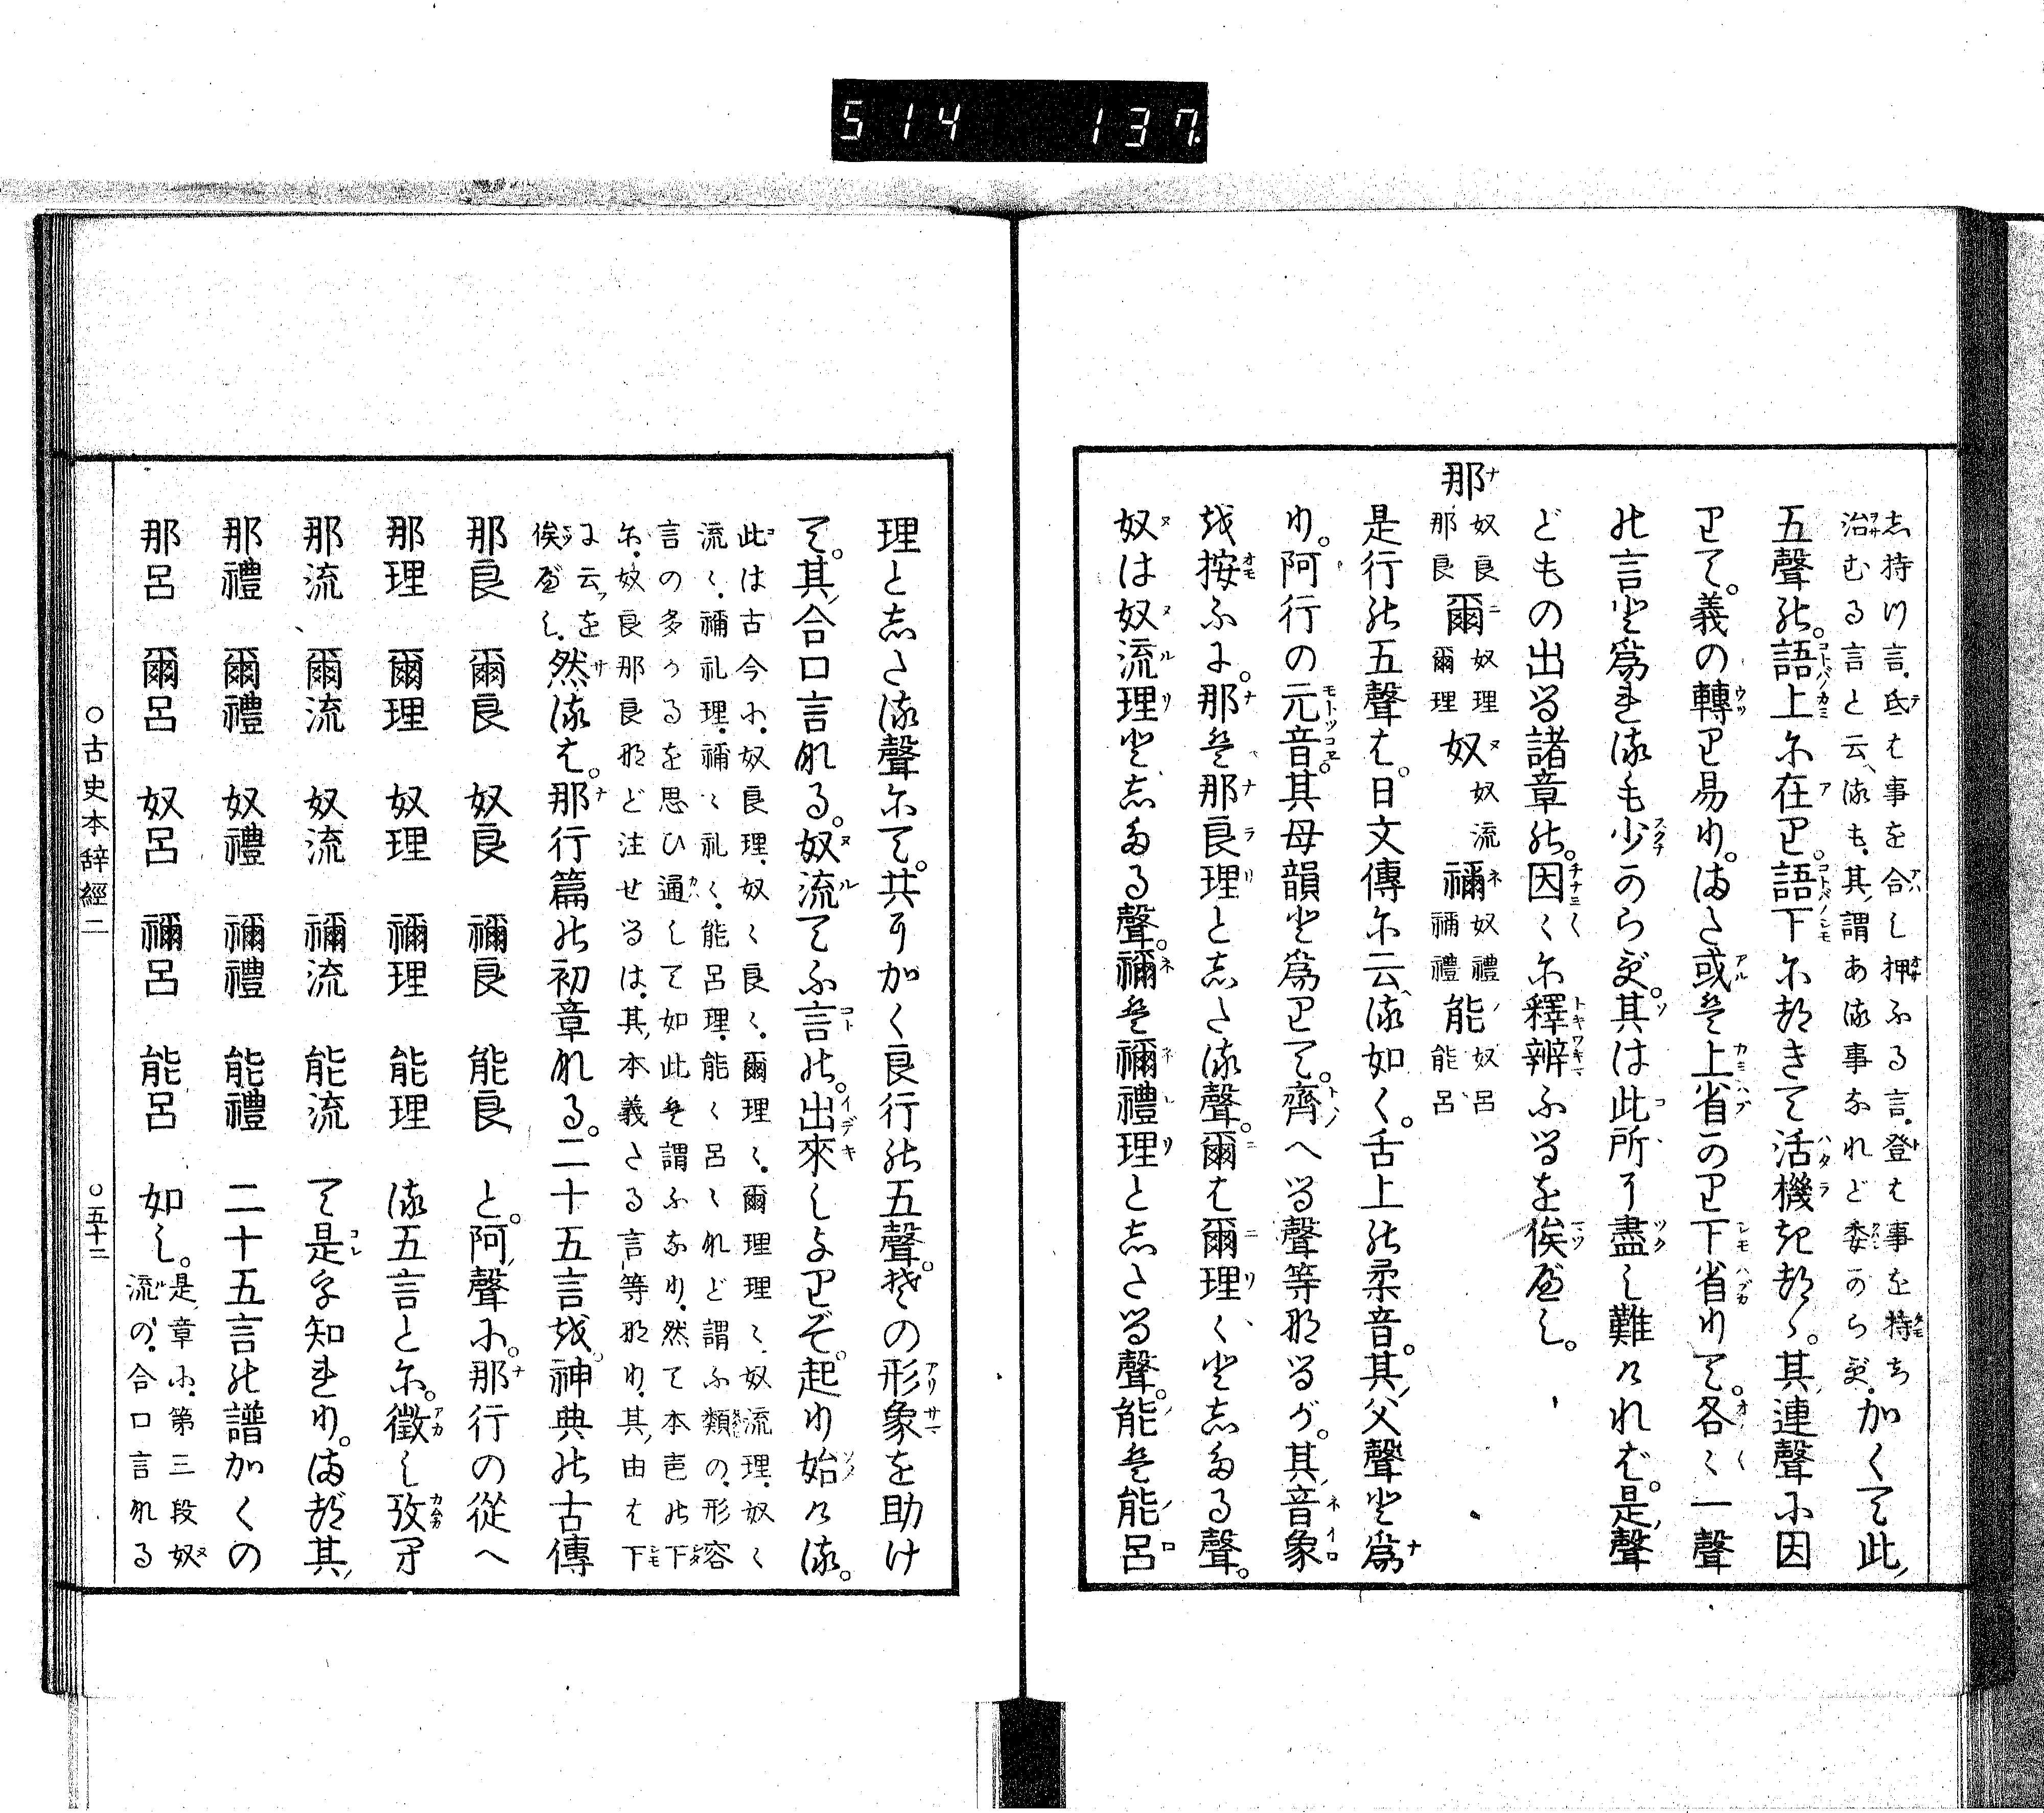 514 137
志持つ言。氐は事を合し押ふる言。登は事を持ち
治むる言と云る、も。其謂ある事なれど委からず。かくて此
五聲の。語上に在り。語下に都きて活機き都ゝ。其連聲に因
りて。義の轉り易り。また或は上省かり下省りて。各〻一聲
の言と爲れるも少からず。其は此所に盡し難ければ。是聲
どもの出る諸章の。因〻に釋辨ふるを俟べし。
那 奴良那良 爾 奴理爾理 奴 奴流 禰 奴禮禰禮 能 奴呂能呂
是行の五聲は。日文傳に云る如く。舌上の柔音。其父聲と爲
り。阿行の元音。其母韻と爲りて。齊へる聲等なるが。其音象
を按ふに。那は那良理と志たる聲。爾は爾理〻と志たる聲。
奴は奴流理と志たる聲。禰は禰禮理と志たる聲。能は能呂
理と志たる聲にて。共にかく良行の五聲。その形象を助け
て。其合口言なる。奴流てふ言の。出來しよりぞ。起り始ける。
此は古今に、奴良理、奴〻良〻、爾理〻、爾理理〻、奴流理、奴〻
流〻、禰礼理、禰〻礼〻、能呂理、能〻呂〻など謂ふ類の、形容
言の多かるを思ひ通して如此は謂ふなり、然て本書の下
に、奴良那良など注せるは、其本義たる言等なり、其由は下
に云を俟べし、然るは。那行篇の初章なる。二十五言を。神典の古傳
那良 爾良 奴良 禰良 能良 と。阿聲に。那行の從へ
那理 爾理 奴理 禰理 能理 る五言とに。徴し攷へ
那流 爾流 奴流 禰流 能流 て是を知れり。まづ其
那禮 爾禮 奴禮 禰禮 能禮 二十五言の譜かくの
那呂 爾呂 奴呂 禰呂 能呂 如し。是章に、第三段奴
流の、合口言なる
○古史本辞經二 ○五十二